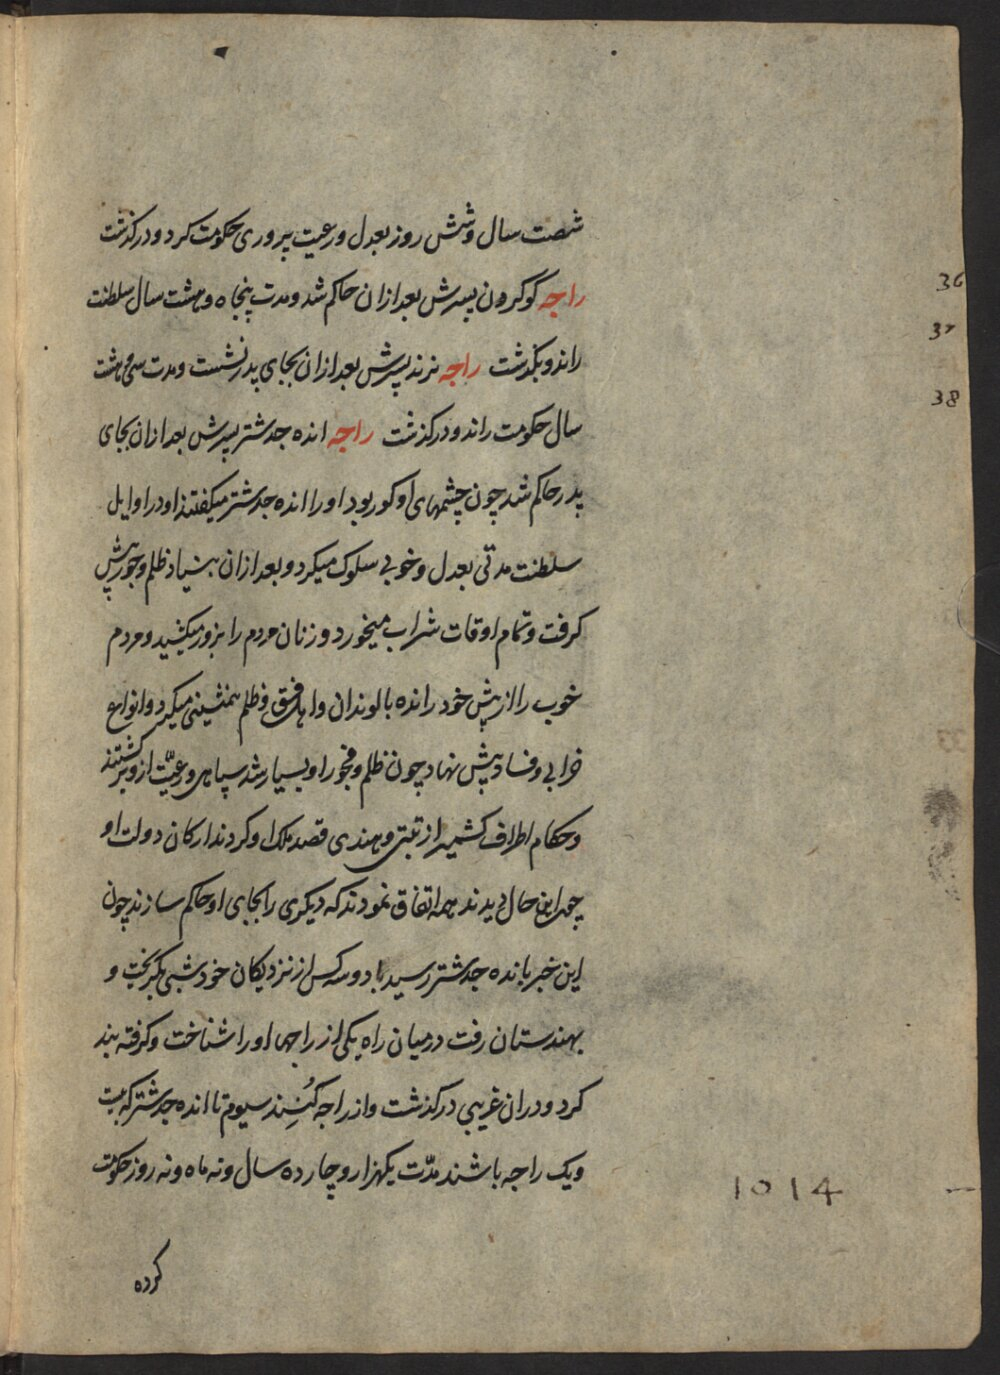 شصت سال و شش روز بعدل و رعیت پروری حکومت کرد و درگذشت
راجه کوکرون پسرش بعد ازان حاکم شد و مدت پنجاه و هشت سال سلطنت
36
راند و بگذشت راجه نرند پسرش بعد ازان بجای پدر نشست و مدت سی و هشت
37
سال حکومت راند و درگذشت راجه انده جدشتر پسرش بعد ازان بجای
38
پدر حاکم شد چون چشمهای او کور بود او را انده جدشتر میکفتند او در اوایل
سلطنت مدتی بعدل و خوبی سلوک میکرد و بعد ازان بنیاد ظلم و جور پیش
کرفت و تمام اوقات شراب میخورد و زنان مردم را بزور میکشید و مردم
خوب را از پیش خود رانده با لوندان و اهل فسق و ظلم همنشینی میکرد و انواع
خرابی و فساد پیش نهاد چون ظلم و فجور او بسیار شد سپاهی و رعیّت ازو برگشتند
و حکام اطراف کشمیر از تبتی و هندی قصد ملک او کردند ارکان دولت او
چون این حال دیدند همه اتفاق نمودند که دیکری را بجای او حاکم سازند چون
این خبر بانده جدشتر رسید با دو سه کس از نزدیکان خود شبی بکریخت و
بهندستان رفت در میان راه یکی از راجها او را شناخت و کرفته بند
کرد و دران غریبی درکذشت و از راجه کُنِند سیوم تا انده جدشتر که بیست
و یک راجه باشند مدّت یکهزار و چارده سال و نه ماه و نه روز حکومت
1014
کرده